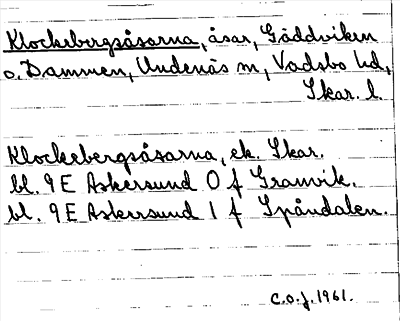 Klockebergsåsarna, åsar, Gäddviken
o. Dammen, Undenäs sn, Vadsbo hd,
Skar. l.
Klockebergsåsarna, ek. Skar.
bl. 9 E Askersund 0 f Granvik.
bl. 9 E Askersund 1 f Spåndalen.
C.O.J. 1961.